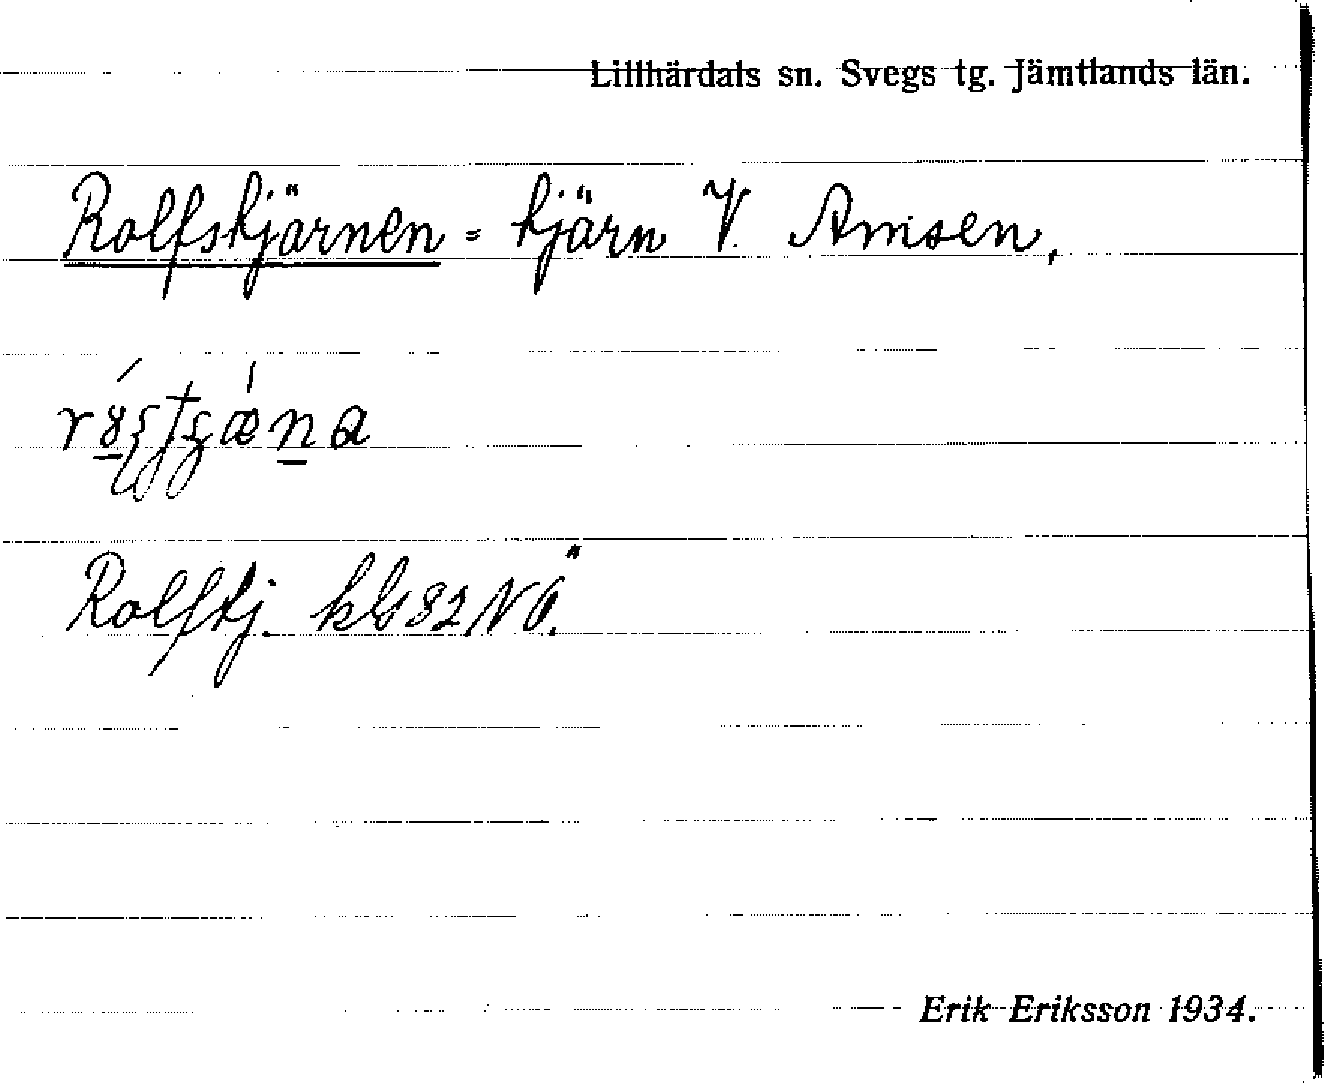 Lillhärdals sn. Svegs tg. Jämtlands län.
Rolfstjärnen = tjärn V. Amsen,
Rolftj. kb 82 NÖ.
Erik Eriksson 1934.